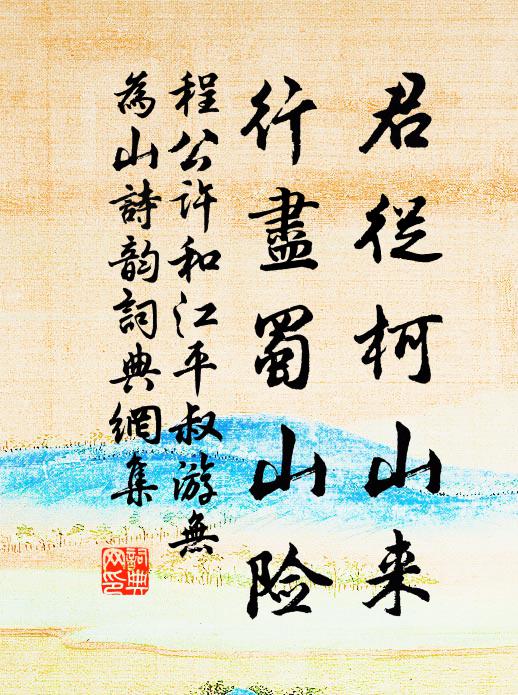 君從柯山来
行盡蜀山险
程公许和江平叔游無
為山詩韵詞典網集
詞典
网印